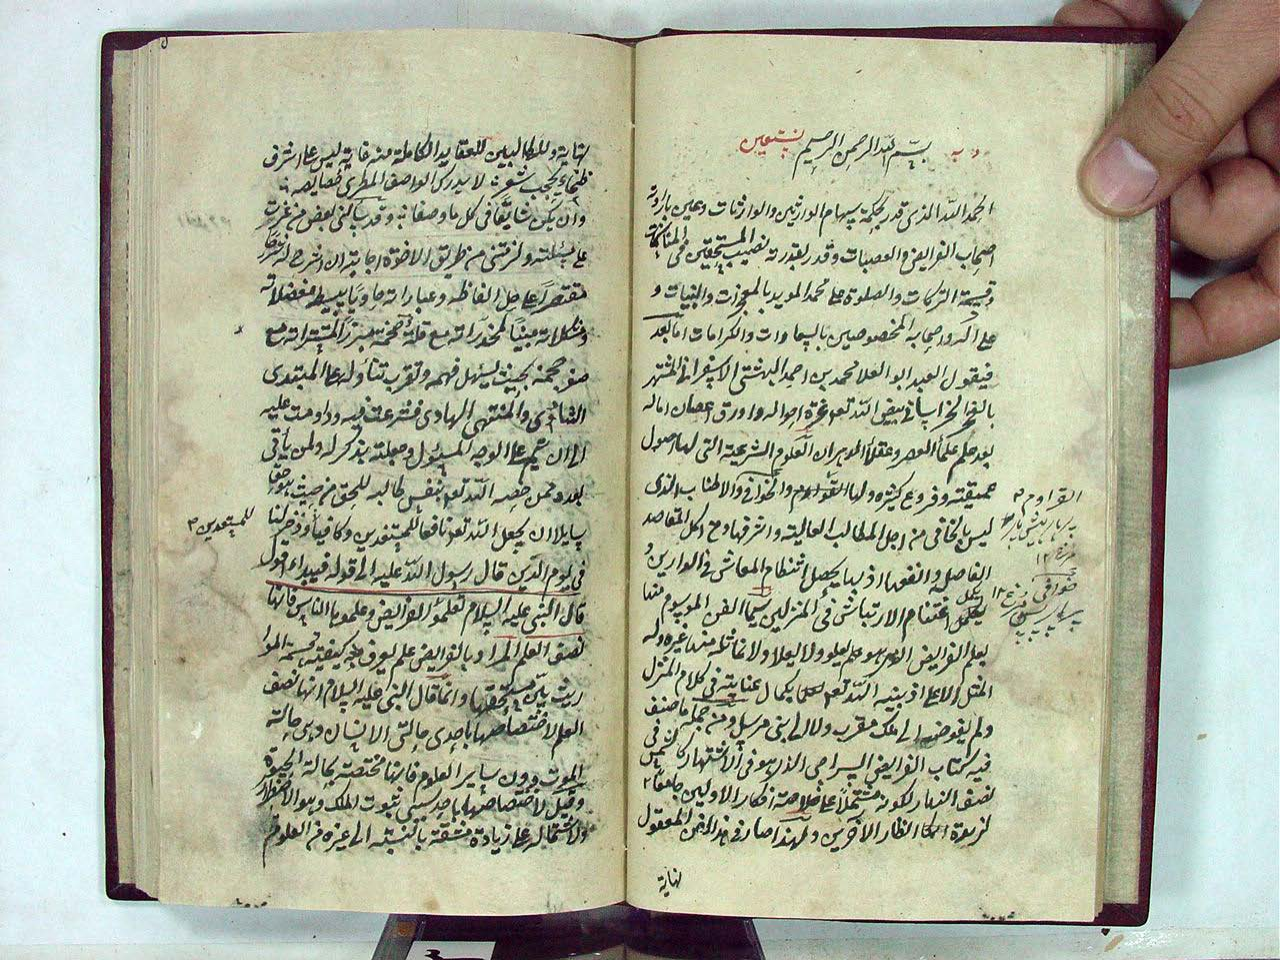 و به بسم الله الرحمن الرحيم نستعين
الحمد لله الذي قدر بحكمة سهام الوارثين والوارثات وعين بارادته
اصحاب الفرايض والعصبات وقدر بقدرته نصيب المستحقين في المناسخات
وقسمة التركات والصلوة على محمد المويد بالمعجزات والبينات و
على آله واصحابه المخصوصين بالسعادات والكرامات اما بعد
فيقول العبد ابو العلا محمد بن احمد البهشتي الاسفرايني المشتهر
بالفخر الخراساني بيض الله تعالى غرة احواله واورق اغصان اماله
بعد حلم علماء العصر وعقلاء الدهر ان العلوم الشريعة التي لها اصول
عميقة وفروع كثيرة ولها القوادم والخوافي والاطناب الذي
ليس بالخافي من اجل المطالب العالية واشرفها ومن اكمل المقاصد
الفاصلة وانفعها اذ بها يحصل انتظام المعاش في الدارين و
يكمل اغتنام الارتياش في المنزلين سيما الفن الموسوم منها
بعلم الفرايض الذي هو علم يعلو ولا يعلا ولا تماثلة منها غيره وله
المثل الاعلى اذ بينه الله تعالى بكمال عنايته في كلام المنزل
ولم يفوضه الى ملك مقرب ولا الى نبي مرسل ومن جملة ما صنف
فيه كتاب الفرايض السراجي الذي هو في الاشتهار كالشمس في
نصف النهار لكونه مشتملا على خلاصة افكار الاولين جامعا
لزبدة انظار الآخرين ولهذا صار في هذا الفن المعقول
نهاية
القوادم
خوافي
نهاية وللطالبين للعقايد الكاملة منه غاية ليس على اشرف
لا يدرك الواصف المطري خصايصه
وان يكن سابقا في كل ما وصفا به وقد سالني بعض من غرت
على مسئلته ولزمتني من طريق الاخوة اجابته ان اشرح له شرحا
مقتصرا على حل الفاظه وعباراته حاويا ببسيطه معضلاته
ومشكلاته مبينا لمخدراته مع قلة حجمه مبرزا لمستتراته مع
صغر حجمه بحيث يسهل فهمه وتقرب تناوله على المبتدي
الشادي والمنتهي الهادي فشرعت فيه وداومت عليه
الى ان تم على الوجه المسئول وجعلته تذكرة له ولمن ياتي
بعد وممن خصه الله تعالى بنفس طالبة للحق من حيث هو حق
سايلا ان يجعل الله تعالى نافعا للمستفيدين وكافيا وذخرا لنا
للمبتعدين
في يوم الدين قال رسول الله عليه الى قوله فيبداء اقول
قال النبي عليه السلام تعلموا الفرايض وعلموها الناس فانها
نصف العلم المراد بالفرايض علم يعرف به كيفية قسمة الموا
ريث بين مستحقيها وانما قال النبي عليه السلام انها نصف
العلم لاختصاصها باحدى حالتي الانسان وهي حالة
الموت دون ساير العلوم فانها مختصة بحالة الحيوة
وقيل لاختصاصها باحد سببي ثبوت الملك وهو الاضطرار
ولاشتمالها على زيادة مشقة بالنسبة الى غيره من العلوم